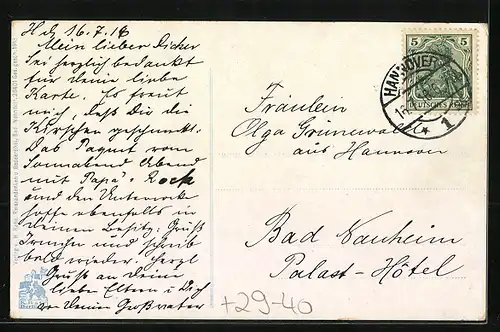 Hd, 16.7.18
Mein lieber Dicker
Sei herzlich bedankt
für deine liebe
Karte. Es freut
mich, daß Dir die
Kirschen geschmeckt.
Das Paquet vom
Sonnabend Abend
mit Papa's Rock
und den Unterrock
hoffe ebenfalls in
deinen Besitz: Grüß
und schreib
bald wieder. Herzl
Gruß an deine
liebe Eltern u Dich
an Deinen Großvater
5 5
HANNOVER
1
Fräulein
Olga Grunewald
aus Hannover
Bad Nauheim
Palast-Hôtel
+29-40